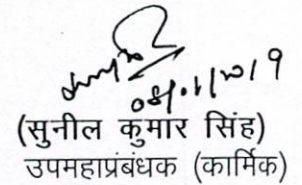 08/01/2019
(सुनील कुमार सिंह)
उपमहाप्रंबंधक (कार्मिक)